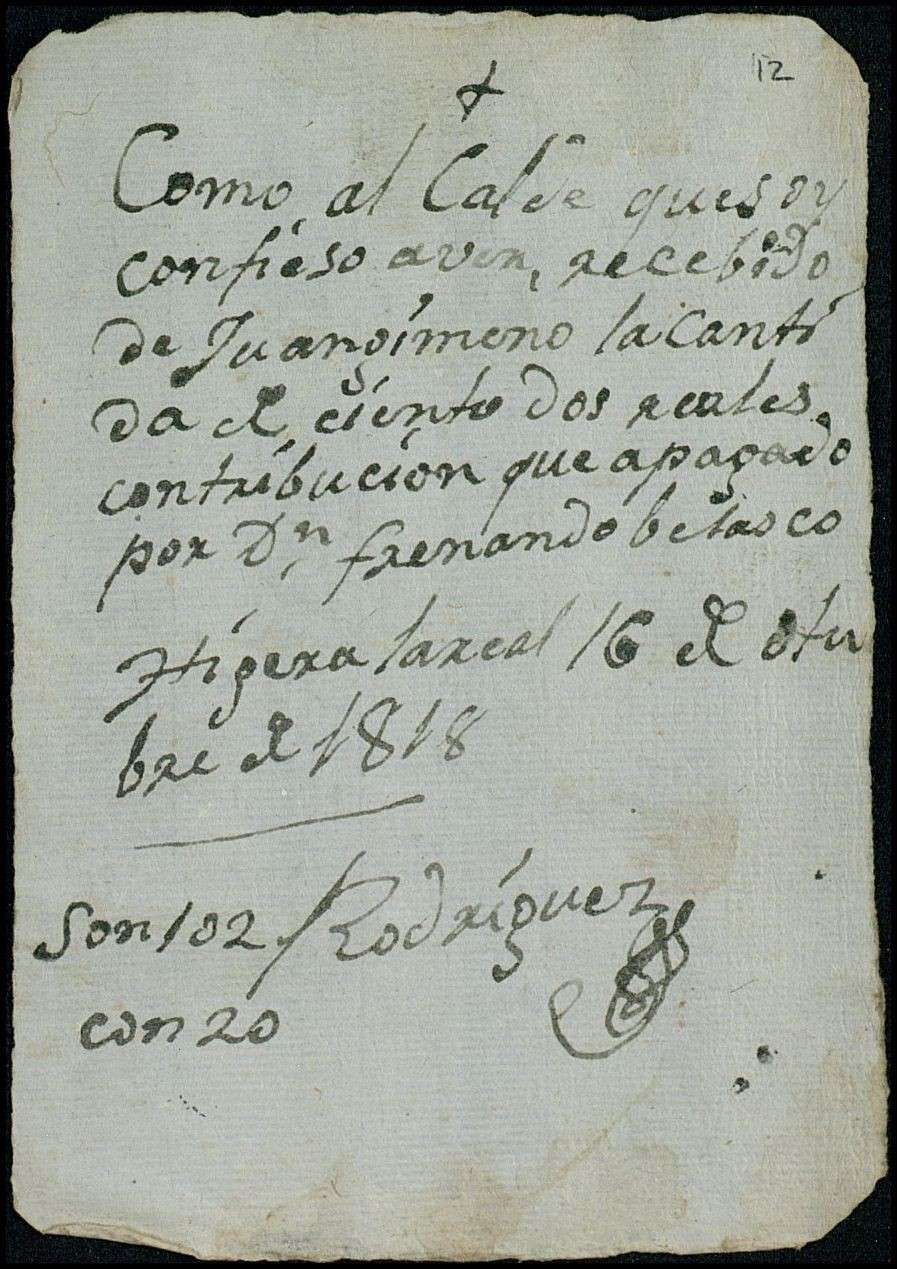 12
Como al Calde que soy
confieso aver, recebido
de Juangimeno la canti
da de ciento dos reales
contribucion que apagado
por Dn frenando belasco
Higera lareal 16 de otu
bre de 1818
Son 102 Rodriguez
con 20